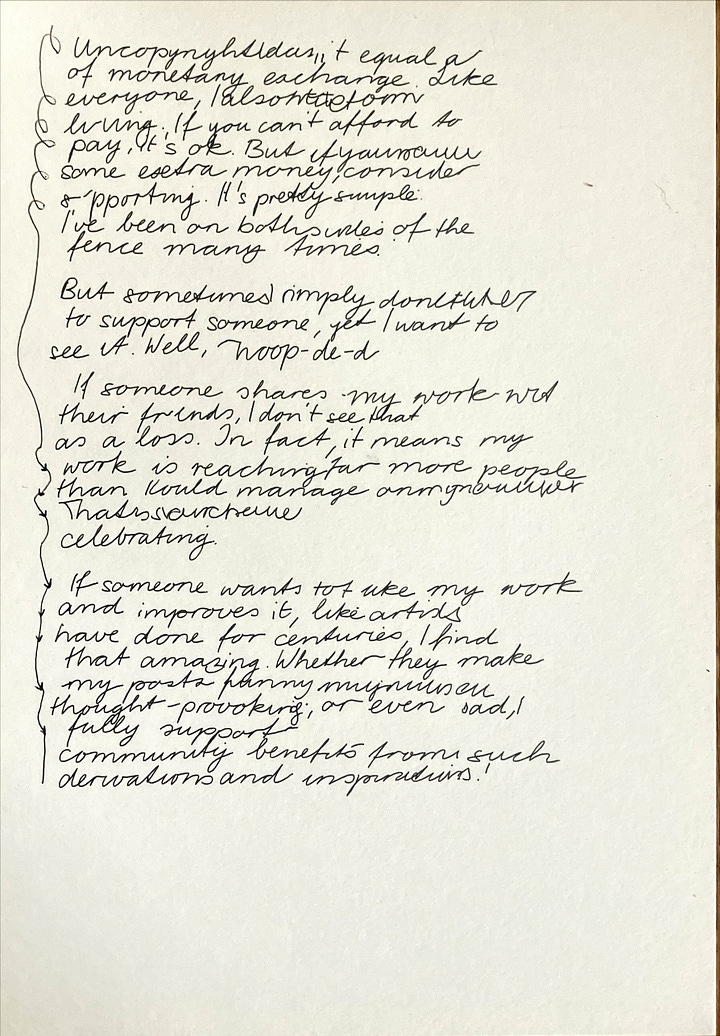 Uncopyrightldas, it equal a
of monetary exchange. Like
everyone, I also
living. If you can't afford to
pay, it's ok. But if you
some exetra money, consider
s-pporting. It's pretty simple.
I've been on both sides of the
fence many times.
But sometimes I simply don't
to support someone, yet I want to
see it. Well, whoop-de-d
If someone shares my work wit
their friends, I don't see that
as a loss. In fact, it means my
work is reaching far more people
than I could manage on my
That's
celebrating.
If someone wants to t ake my work
and improves it, like artists
have done for centuries, I find
that amazing. Whether they make
my posts funny
thought-provoking, or even sad, I
fully support
community benefits from such
derivations and inspirations!